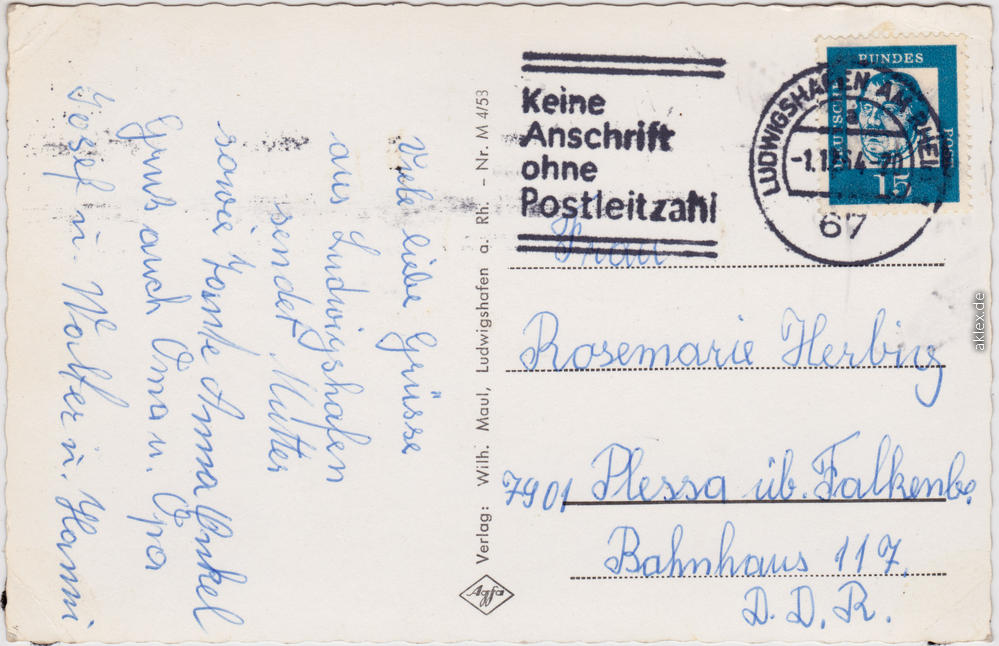 Viele liebe Grüsse
aus Ludwigshafen
sendet Mutter
sowie Tante Anna Onkel
Gruß auch Oma u. Opa
Josef u. Walter u. Hanni
Verlag: Wilh. Maul, Ludwigshafen a. Rh. – Nr. M 4/53
Agfa
Keine
Anschrift
ohne
Postleitzahl
LUDWIGSHAFEN AM RHEIN
a
67
BUNDES
POST
15
Frau
Rosemarie Herbig
7901 Plessa üb. Falkenb.
Bahnhaus 117.
D.D.R.
aklex.de